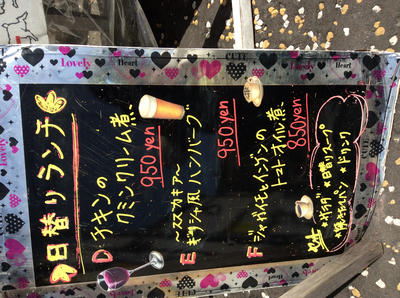 日替りランチ
D チキンの
クミンクリーム煮
950yen
E 〜スズカキア〜
ギリシャ風ハンバーグ
950yen
F ジャガイモとインゲンの
トマトオイル煮
850yen
*サラダ *日替りスープ
*ドリンク
Lovely
Heart
CUTE